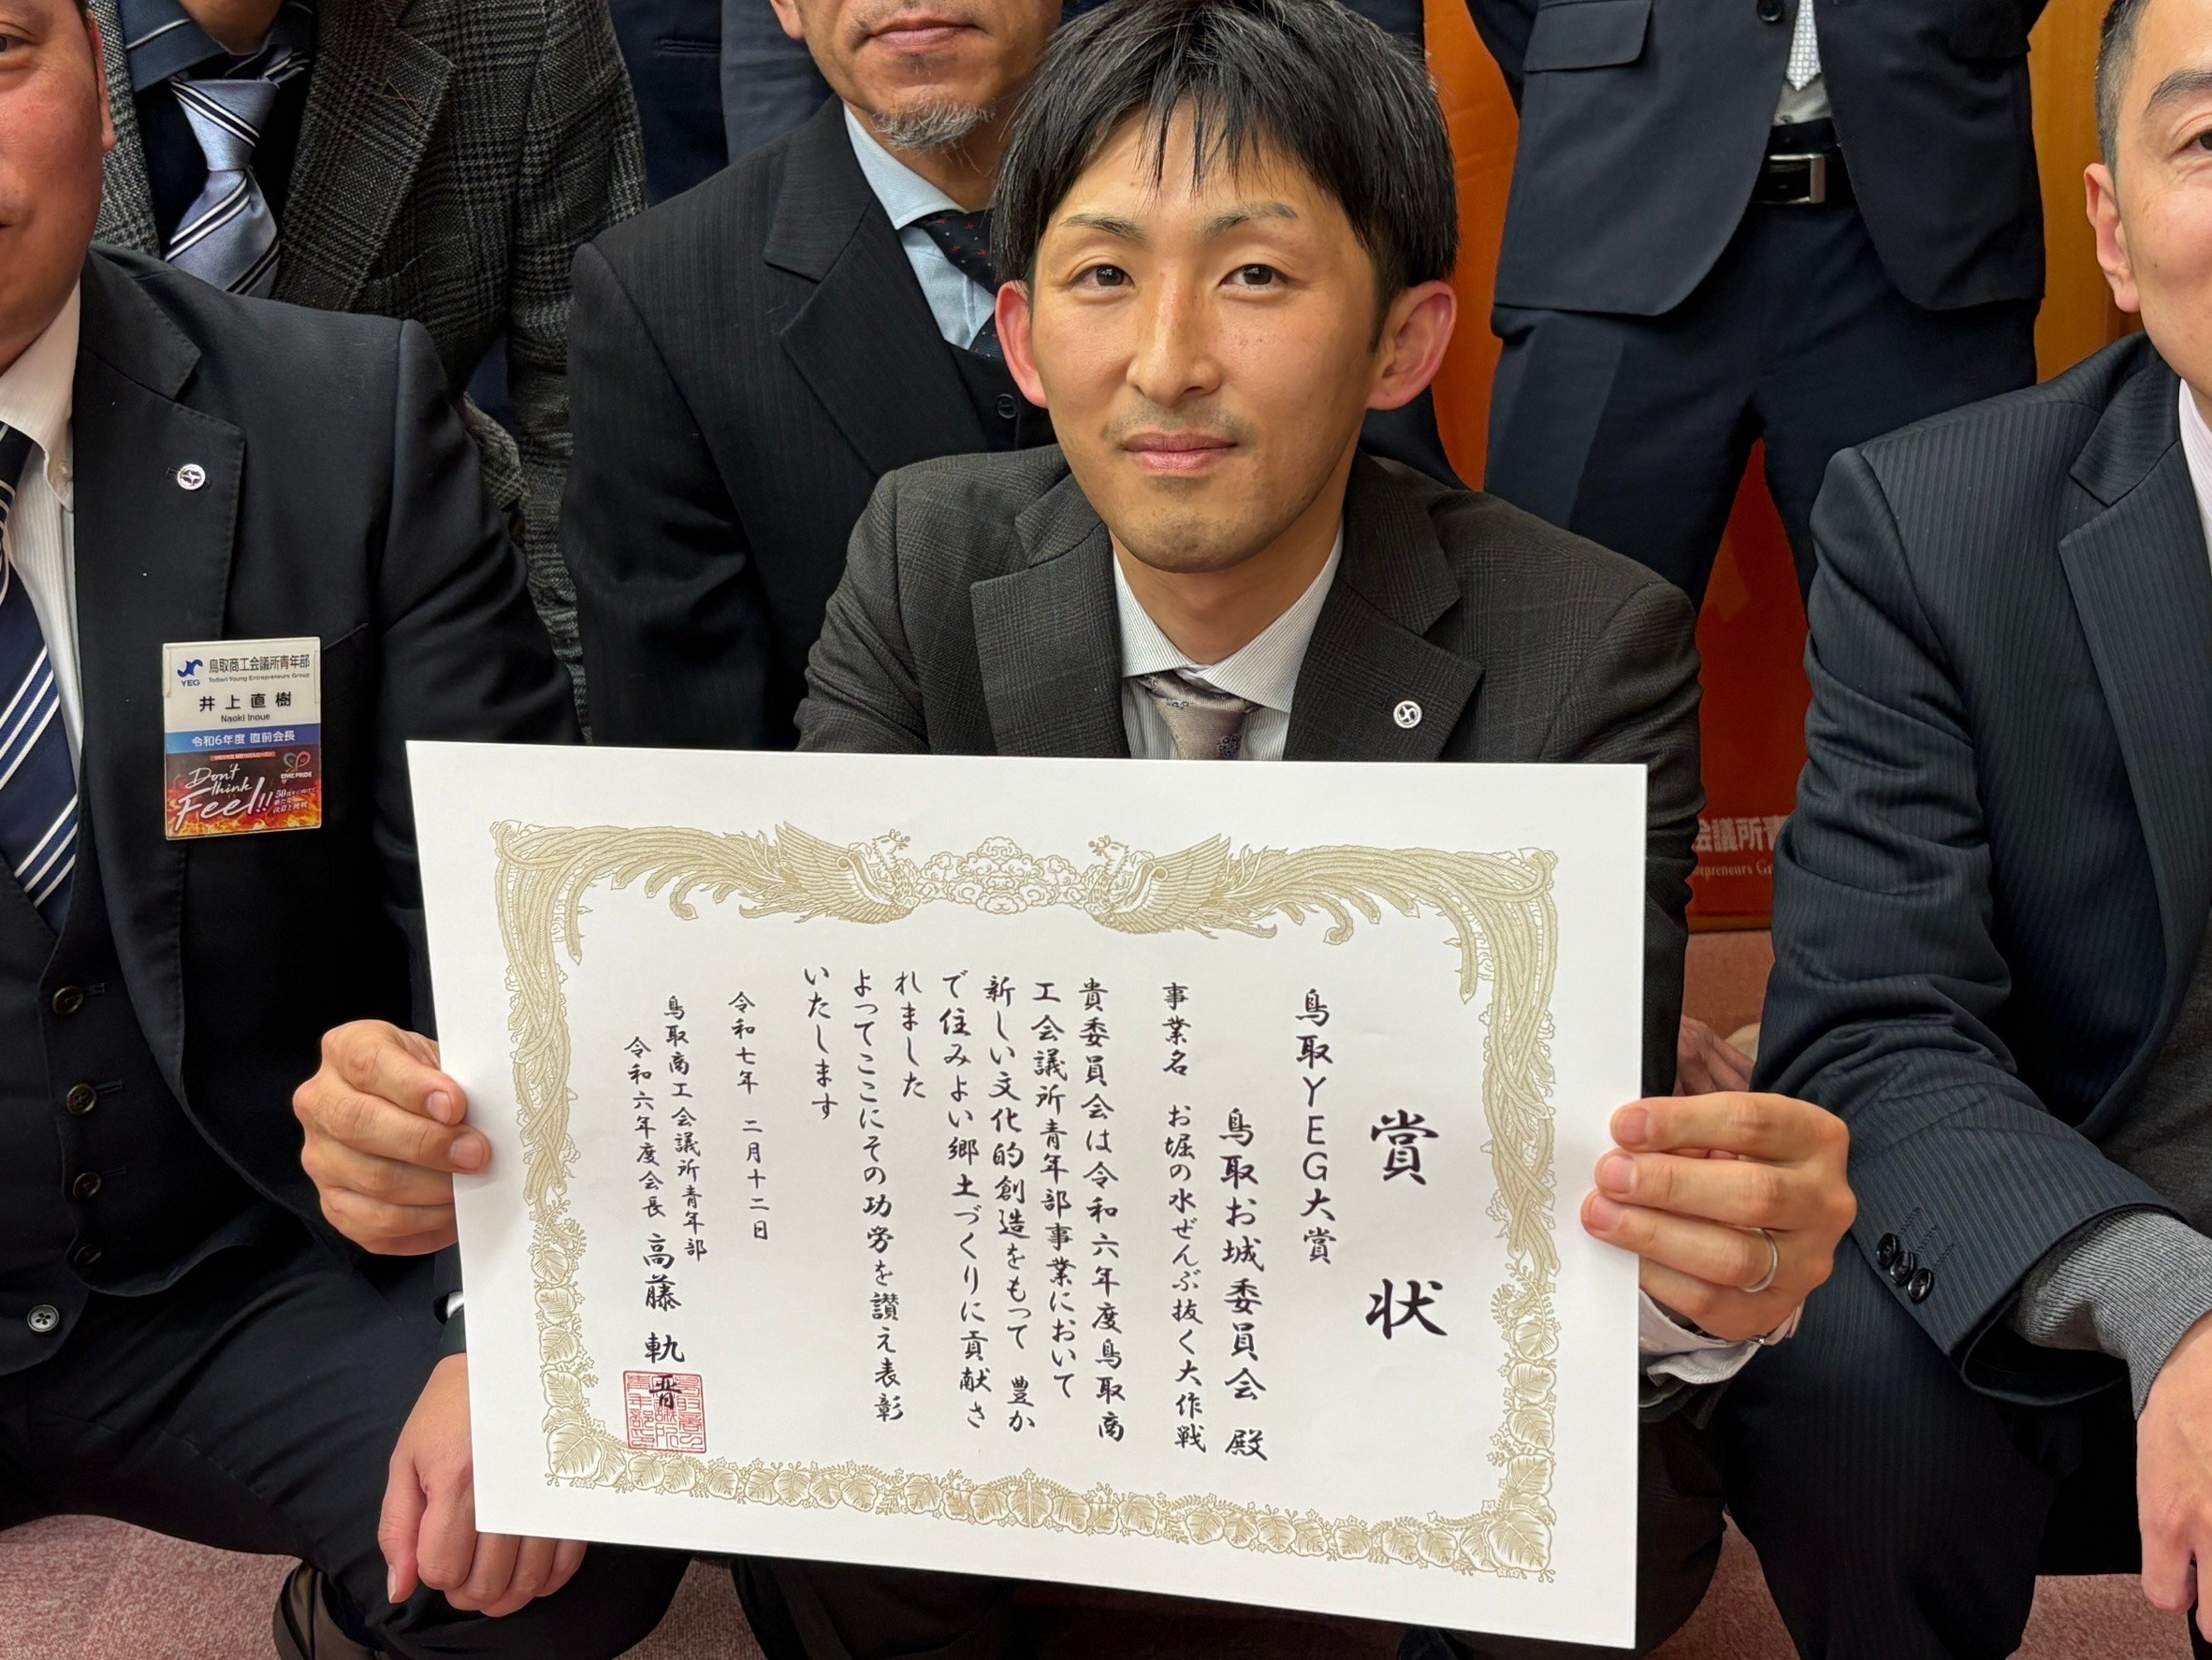 賞状
鳥取YEG大賞
鳥取お城委員会 殿
事業名 お堀の水ぜんぶ抜く大作戦
貴委員会は令和六年度鳥取商
工会議所青年部事業において
新しい文化的創造をもって 豊か
で住みよい郷土づくりに貢献さ
れました
よってここにその功労を讃え表彰
いたします
令和七年 二月十二日
鳥取商工会議所青年部
令和六年度会長 高藤 軌晋
YEG
鳥取商工会議所青年部
Tottori Young Entrepreneurs Group
井上直樹
Naoki Inoue
令和6年度 直前会長
Don't
think
Feel!!
CIVIC PRIDE
会議所青
repreneurs G